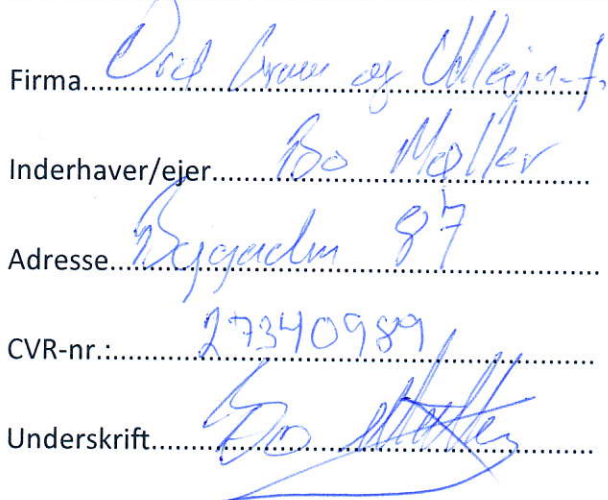 Firma..... og
Inderhaver/ejer..... Bo Møller
Adresse..... Bygaden 87
CVR-nr.:..... 27340989
Underskrift..... Bo Møller